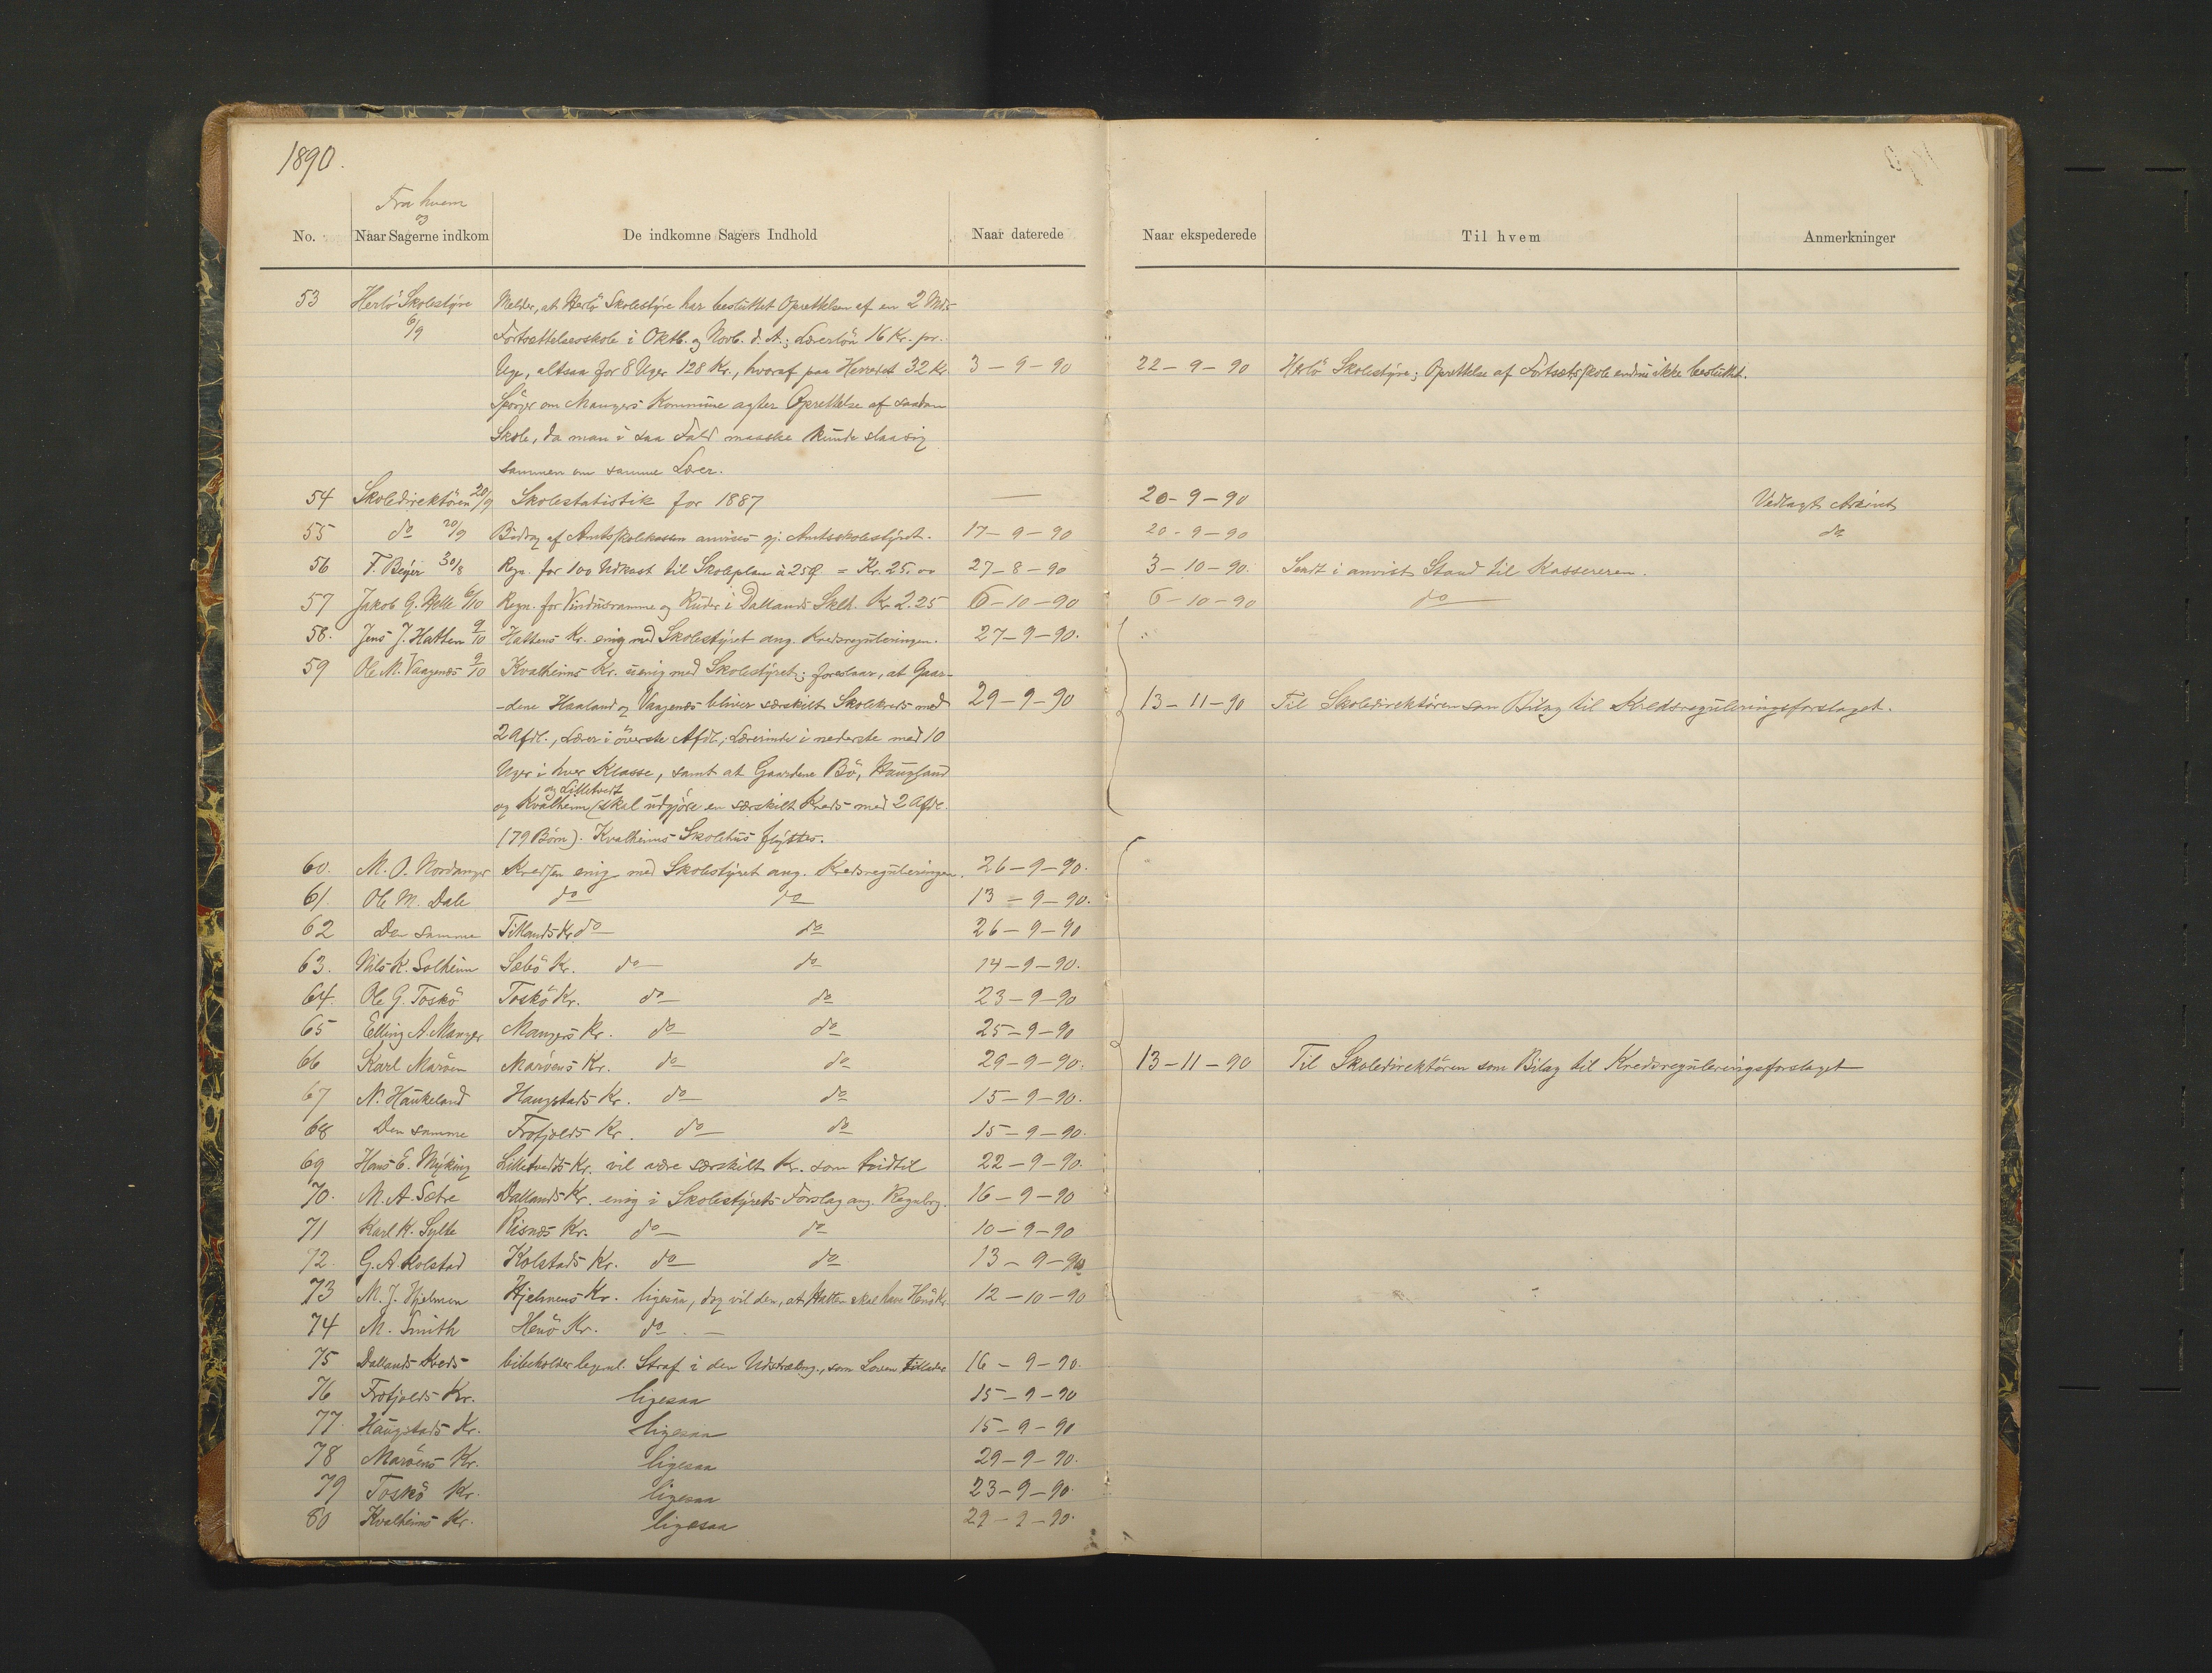 1890.
Fra hvem
og
No. Naar Sagerne indkom De indkomne Sagers Indhold Naar daterede Naar ekspederede Til hvem Anmerkninger
53 Herlö Skolestyre Melder, at Herlö Skolestyre har besluttet Oprettelsen af en 2 Mdrs
6/9 Fortsættelsesskole i Oktb. og Novb. d. A.; Lærerlön 16 Kr. pr.
Uge, altsaa for 8 Uger 128 Kr., hvoraf paa Herredet 32 Kr. 3-9-90 22-9-90 Herlö Skolestyre; Oprettelse af Fortsætsskole endnu ikke besluttet.
Spörger om Mangers Kommune agter Oprettelse af saadan
Skole, da man i saa Fald maaske kunde slaa sig
sammen om samme Lærer.
54 Skoledirektören 20/9 Skolestatistik for 1887 — 20-9-90 Vedlagt Arkivet
55 do 20/9 Bidrag af Amtsskolekassen anvises gj. Amtsskolestyret. 17-9-90 20-9-90 do
56 F. Beyer 30/8 Regn. for 100 Udkast til Skoleplan à 25 Ø = Kr. 25.00 27-8-90 3-10-90. Sendt i anvist Stand til Kassereren.
57 Jakob G. Helle 6/10 Regn. for Vinduesramme og Ruder i Dallands Sklh. Kr. 2.25 6-10-90 6-10-90 do
58. Jens J. Hatten 9/10 Hattens Kr. enig med Skolestyret ang. Kredsreguleringen. 27-9-90.
59 Ole M. Vaagenæs 9/10 Kvalheims Kr. uenig med Skolestyret; foreslaar, at Gaar-
-dene Haaland og Vaagenæs bliver særskilt Skolekreds med 29-9-90 13-11-90 Til Skoledirektören som Bilag til Kredsreguleringsforslaget.
2 Afdl., Lærer i överste Afdl., Lærerinde i nederste med 10
Uger i hver Klasse, samt at Gaardene Bö, Haugland
og Lilletvedt
og Kvalheim (skal udgjöre en særskilt Kreds med 2 Afdl.
(79 Börn). Kvalheims Skolehus flyttes.
60. M. O. Nordanger Kredsen enig med Skolestyret ang. Kredsreguleringen. 26-9-90.
61. Ole M. Dale do do 13-9-90.
62 Den samme Titlands Kr. do do 26-9-90
63. Nils K. Solheim Sæbö Kr. do do 14-9-90.
64. Ole G. Toskö Toskö Kr. do do 23-9-90
65 Elling A. Manger Mangers Kr. do do 25-9-90
66 Karl Maröen Maröens Kr. do do 29-9-90. 13-11-90 Til Skoledirektören som Bilag til Kredsreguleringsforslaget
67 N. Haukeland Haugstads Kr. do do 15-9-90.
68 Den samme Frotjolds Kr. do do 15-9-90.
69 Hans E. Myking Lilletvedts Kr. vil være særskilt Kr. som hidtil 22-9-90.
70. M. A. Sætre Dallands Kr. enig i Skolestyrets Forslag ang. Regulerg. 16-9-90
71 Karl K. Sylte Risnes Kr. do do 10-9-90
72. G. A. Kolstad Kolstads Kr. do do 13-9-90
73 M. J. Hjelmen Hjelmens Kr. ligesaa, dog vil den, at Hatten skal have Henö Kr. 12-10-90
74 M. Smith Henö Kr. do —
75 Dallands Kreds bibeholder legeml. Straf i den Udstrækng., som Loven tillader 16-9-90.
76 Frotjolds Kr. ligesaa 15-9-90
77. Haugstads Kr. ligesaa 15-9-90
78 Maröens Kr. ligesaa 29-9-90.
79 Toskö Kr. ligesaa 23-9-90.
80 Kvalheims Kr. ligesaa 29-9-90.